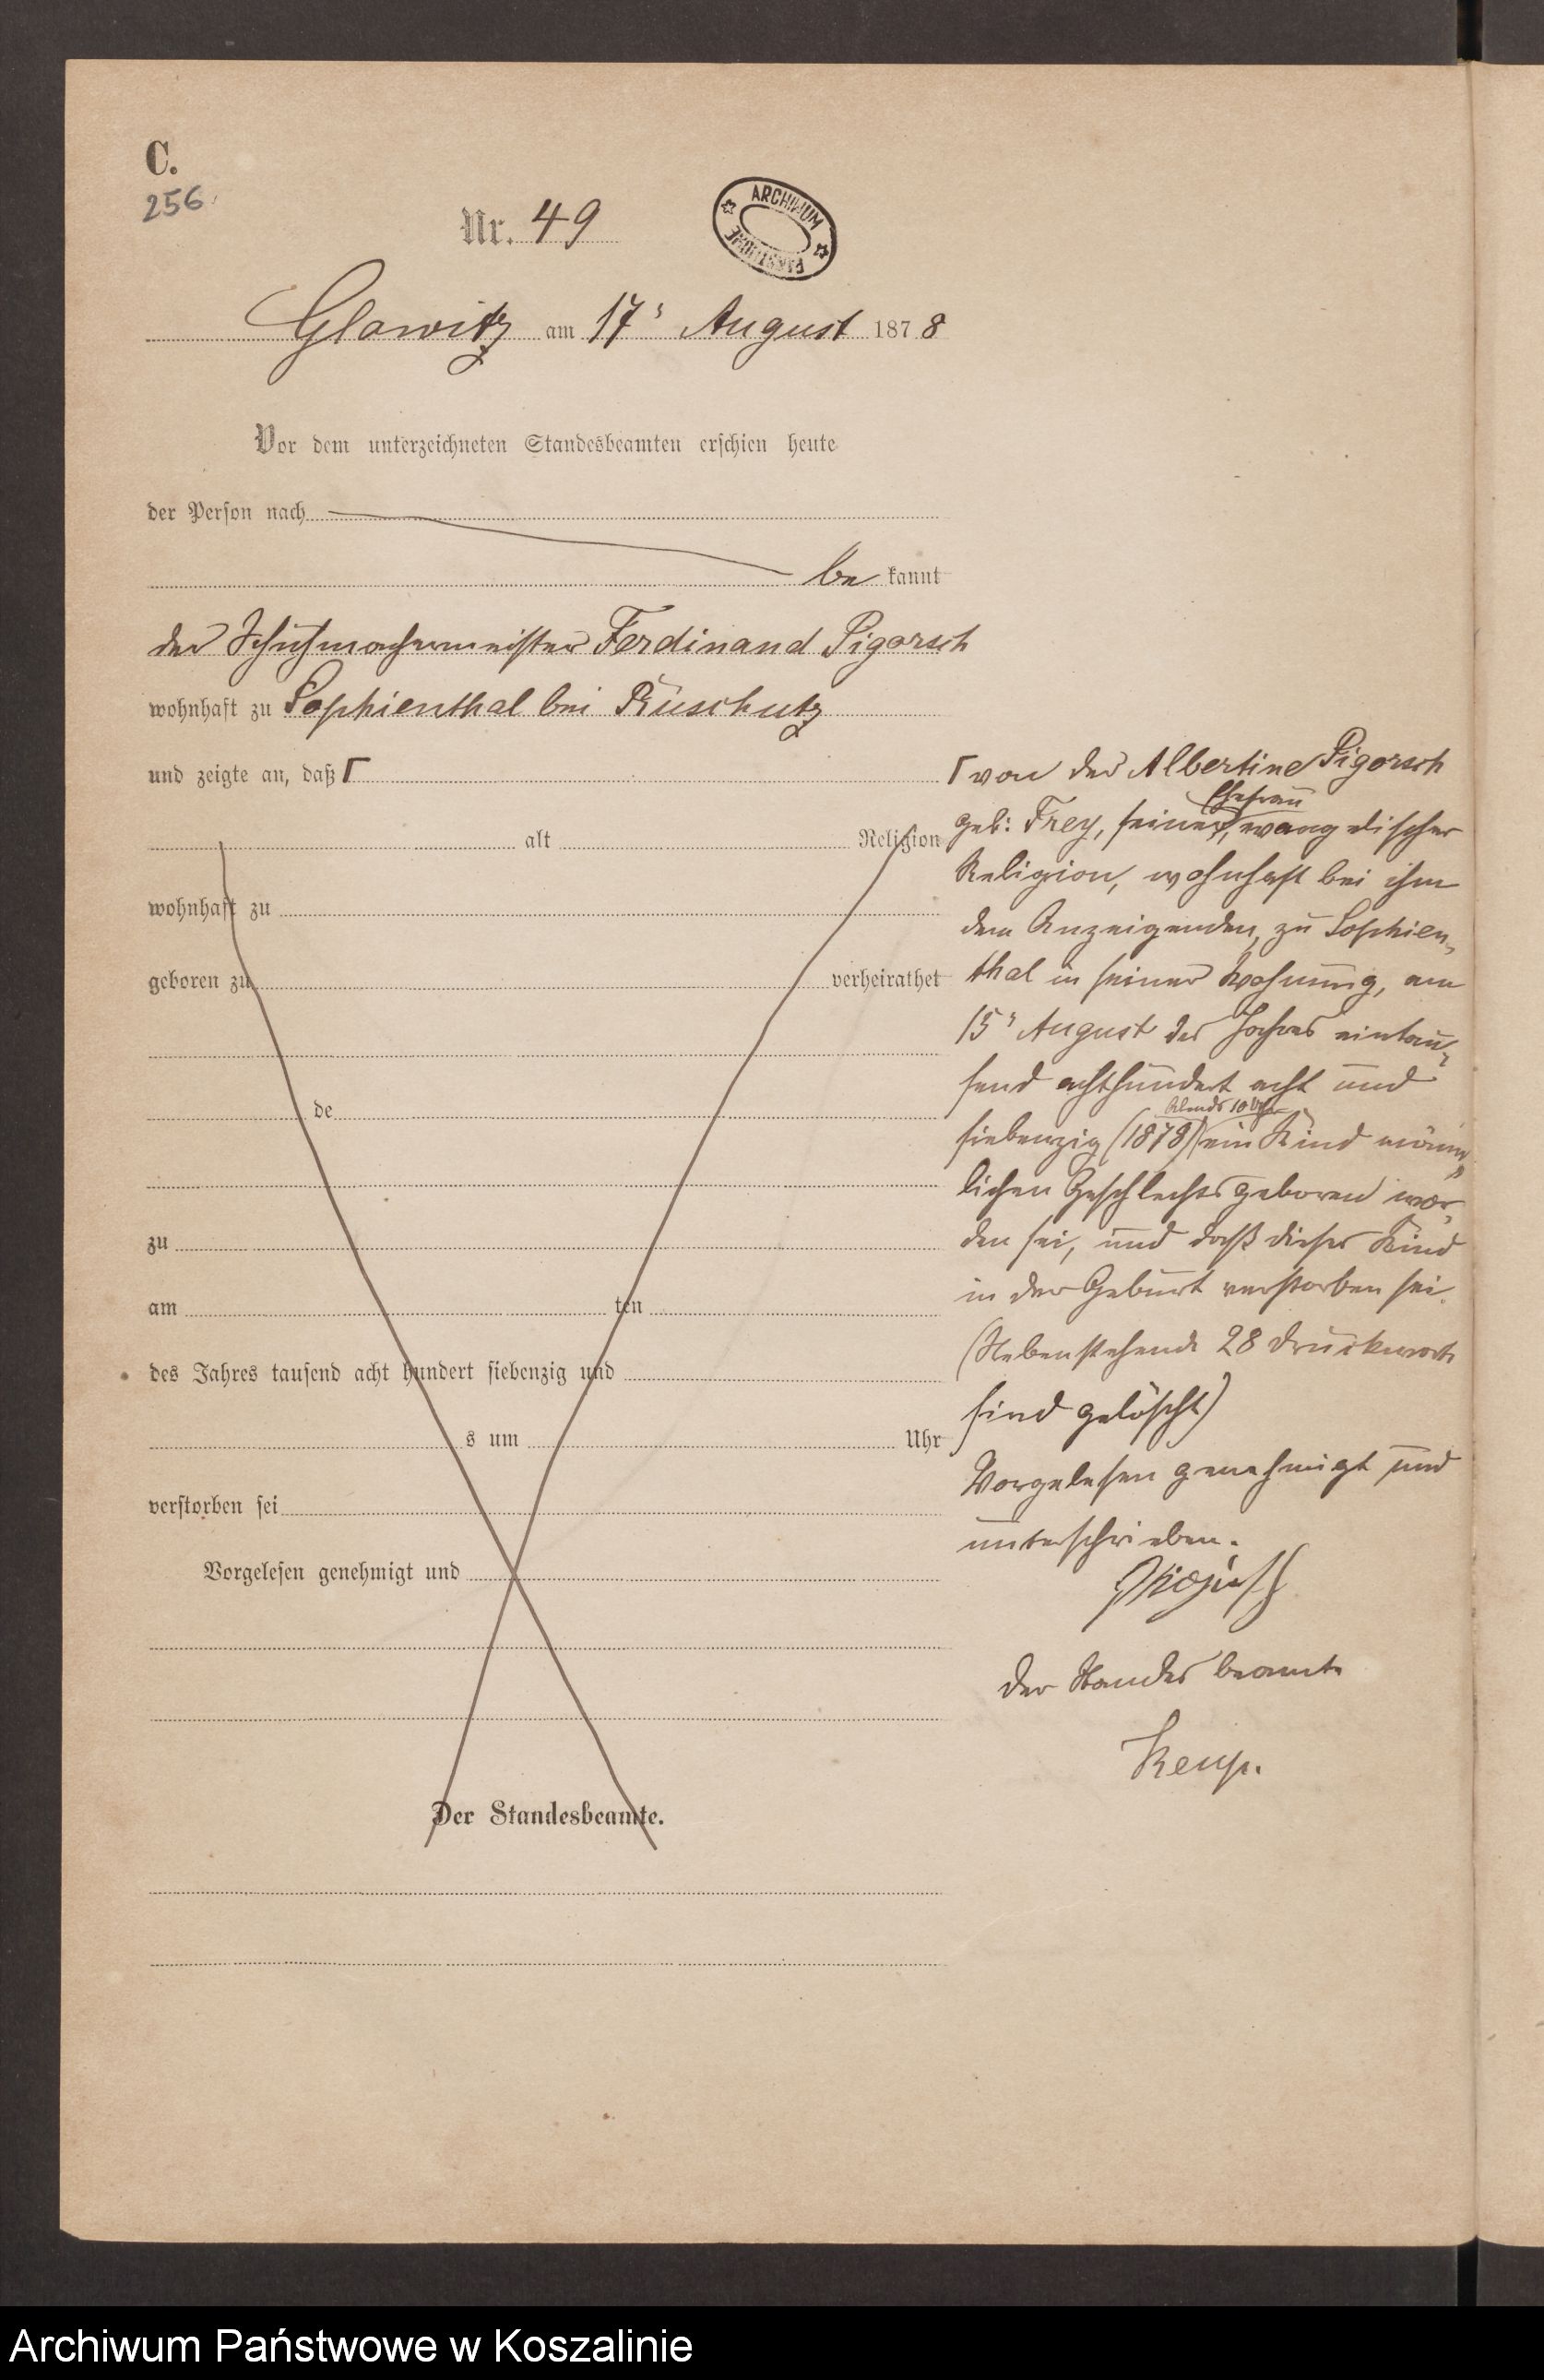 C.
256.
Nr. 49
ARCHIWUM PAŃSTWOWE
Glowitz am 17ᵗ August 1878
Vor dem unterzeichneten Standesbeamten erschien heute
der Person nach
be kannt
der Schuhmachermeister Ferdinand Pigorsch
wohnhaft zu Sophienthal bei Rüschütz
und zeigte an, daß Γ
alt Religion
wohnhaft zu
geboren zu verheirathet
de
zu
am ten
des Jahres tausend acht hundert siebenzig und
s um Uhr
verstorben sei
Vorgelesen genehmigt und
Der Standesbeamte.
Γ von der Albertine Pigorsch
Ehefrau
geb: Frey, seiner, evangelischer
Religion, wohnhaft bei ihm
dem Anzeigenden, zu Sophien-
thal in seiner Wohnung, am
15ᵗ August des Jahres eintau-
send achthundert acht und
Abends 10 Uhr
siebenzig (1878) ein Kind männ-
lichen Geschlechts geboren wor-
den sei, und daß dieses Kind
in der Geburt verstorben sei.
(Nebenstehende 28 Druckworte
sind gelöscht)
Vorgelesen genehmigt und
unterschrieben.
Der Standesbeamte
Archiwum Państwowe w Koszalinie